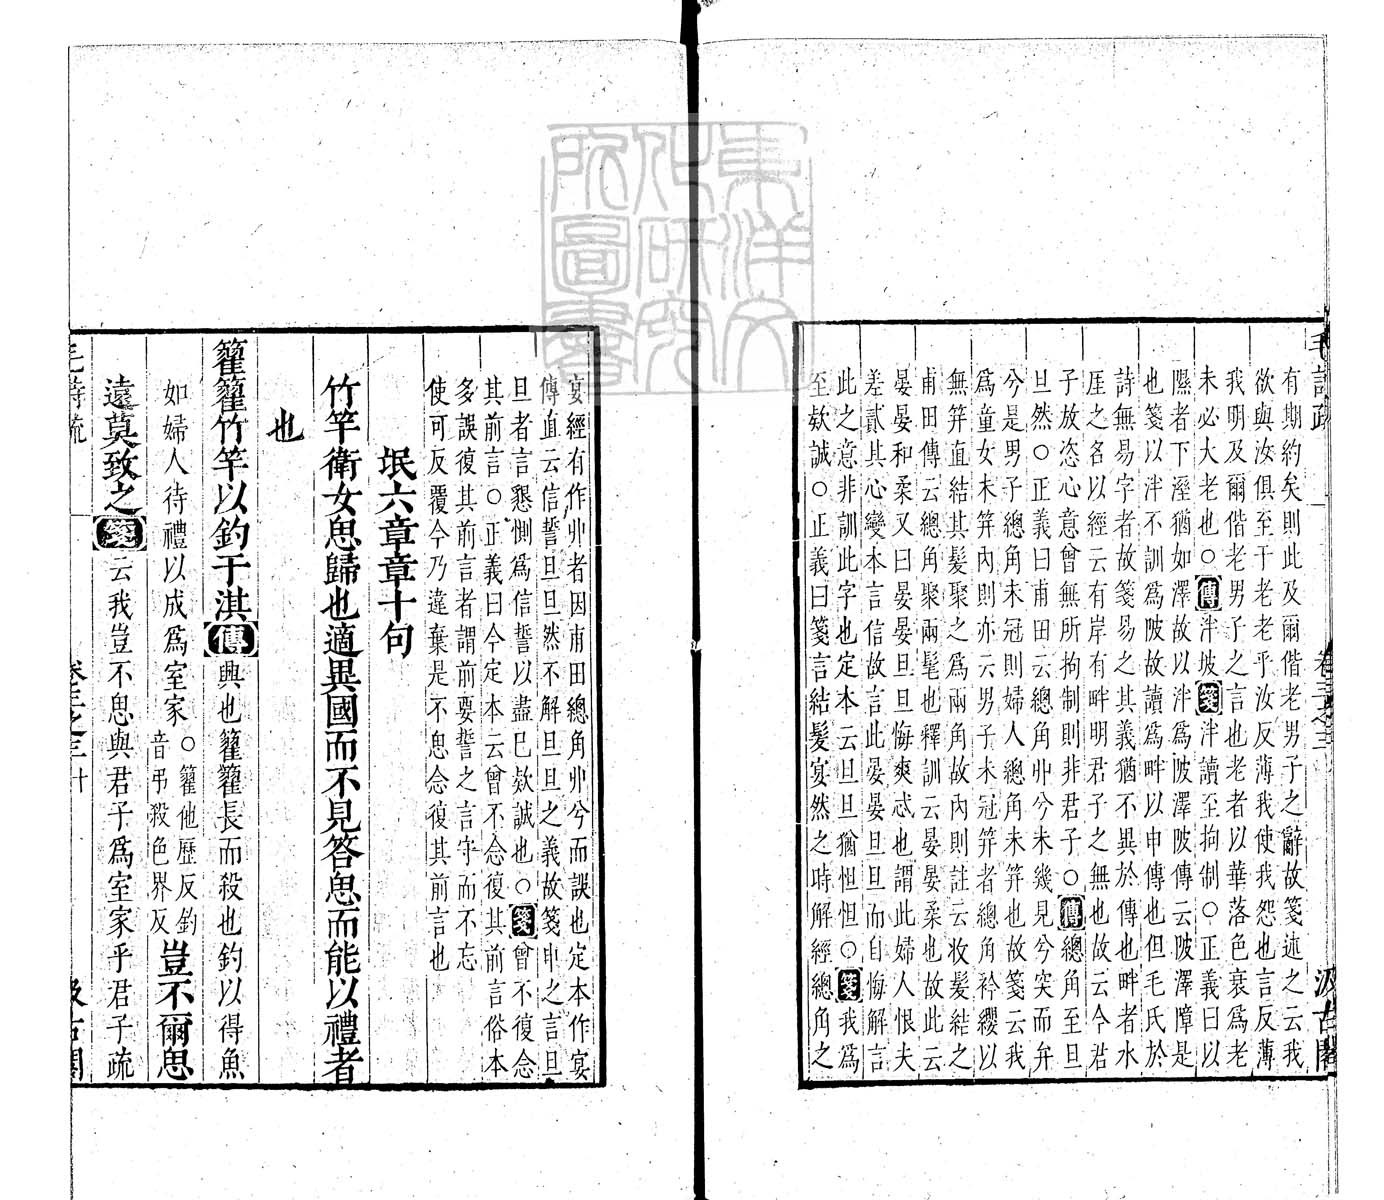 有期約矣則此及爾偕老男子之辭故箋述之云我
欲與汝俱至于老老乎汝反薄我使我怨也言反薄
我明及爾偕老男子之言也老者以華落色衰為老
未必大老也○傳泮坡箋泮讀至拘制○正義曰以
隰者下溼猶如澤故以泮為陂澤陂傳云陂澤障是
也箋以泮不訓為陂故讀為畔以申傳也但毛氏於
詩無易字者故箋易之其義猶不異於傳也畔者水
厓之名以經云有岸有畔明君子之無也故云今君
子放恣心意曾無所拘制則非君子○傳總角至旦
旦然○正義曰甫田云總角丱兮未幾見兮突而弁
兮是男子總角未冠則婦人總角未笄也故箋云我
為童女未笄內則亦云男子未冠笄者總角衿纓以
無笄直結其髮聚之為兩角故內則註云收髮結之
甫田傳云總角聚兩髦也釋訓云晏晏柔也故此云
晏晏和柔又曰晏晏旦旦悔爽忒也謂此婦人恨夫
差貳其心變本言信故言此晏晏旦旦而自悔解言
此之意非訓此字也定本云旦旦猶怛怛○箋我為
至欵誠○正義曰箋言結髮宴然之時解經總角之
宴經有作丱者因甫田總角丱兮而誤也定本作宴
傳直云信誓旦旦然不解旦旦之義故箋申之言旦
旦者言懇惻為信誓以盡巳欵誠也○箋曾不復念
其前言○正義曰今定本云曾不念復其前言俗本
多誤復其前言者謂前要誓之言守而不忘
使可反覆今乃違棄是不思念復其前言也
氓六章章十句
竹竿衛女思歸也適異國而不見答思而能以禮者
也
籊籊竹竿以釣于淇傳興也籊籊長而殺也釣以得魚
如婦人待禮以成為室家○籊他歷反釣音弔殺色界反豈不爾思
遠莫致之箋云我豈不思與君子為室家乎君子疏
毛詩疏 卷三之三 十 汲古閣